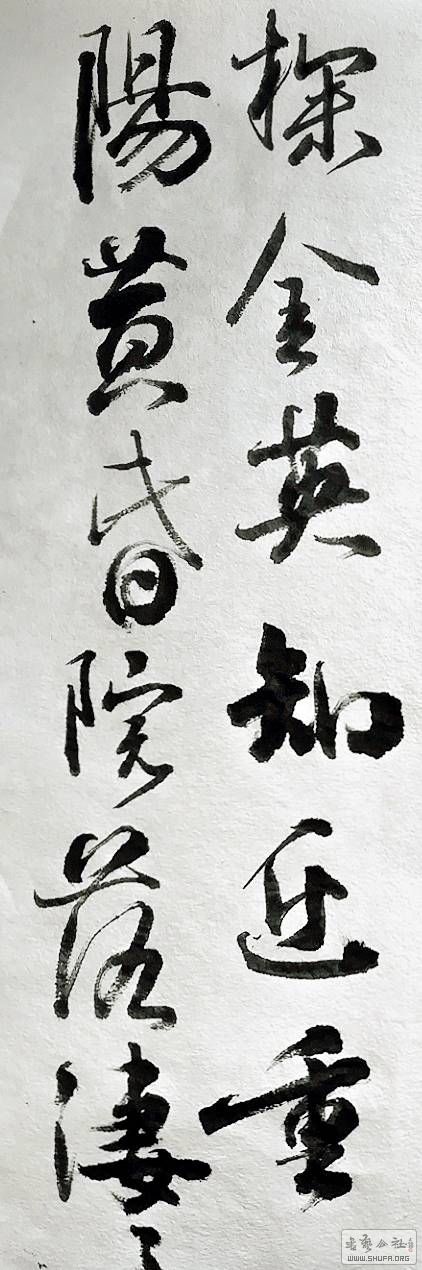 探金英知近重
陽黄昏院落凄〻
書藝公社
WWW.SHUFA.ORG